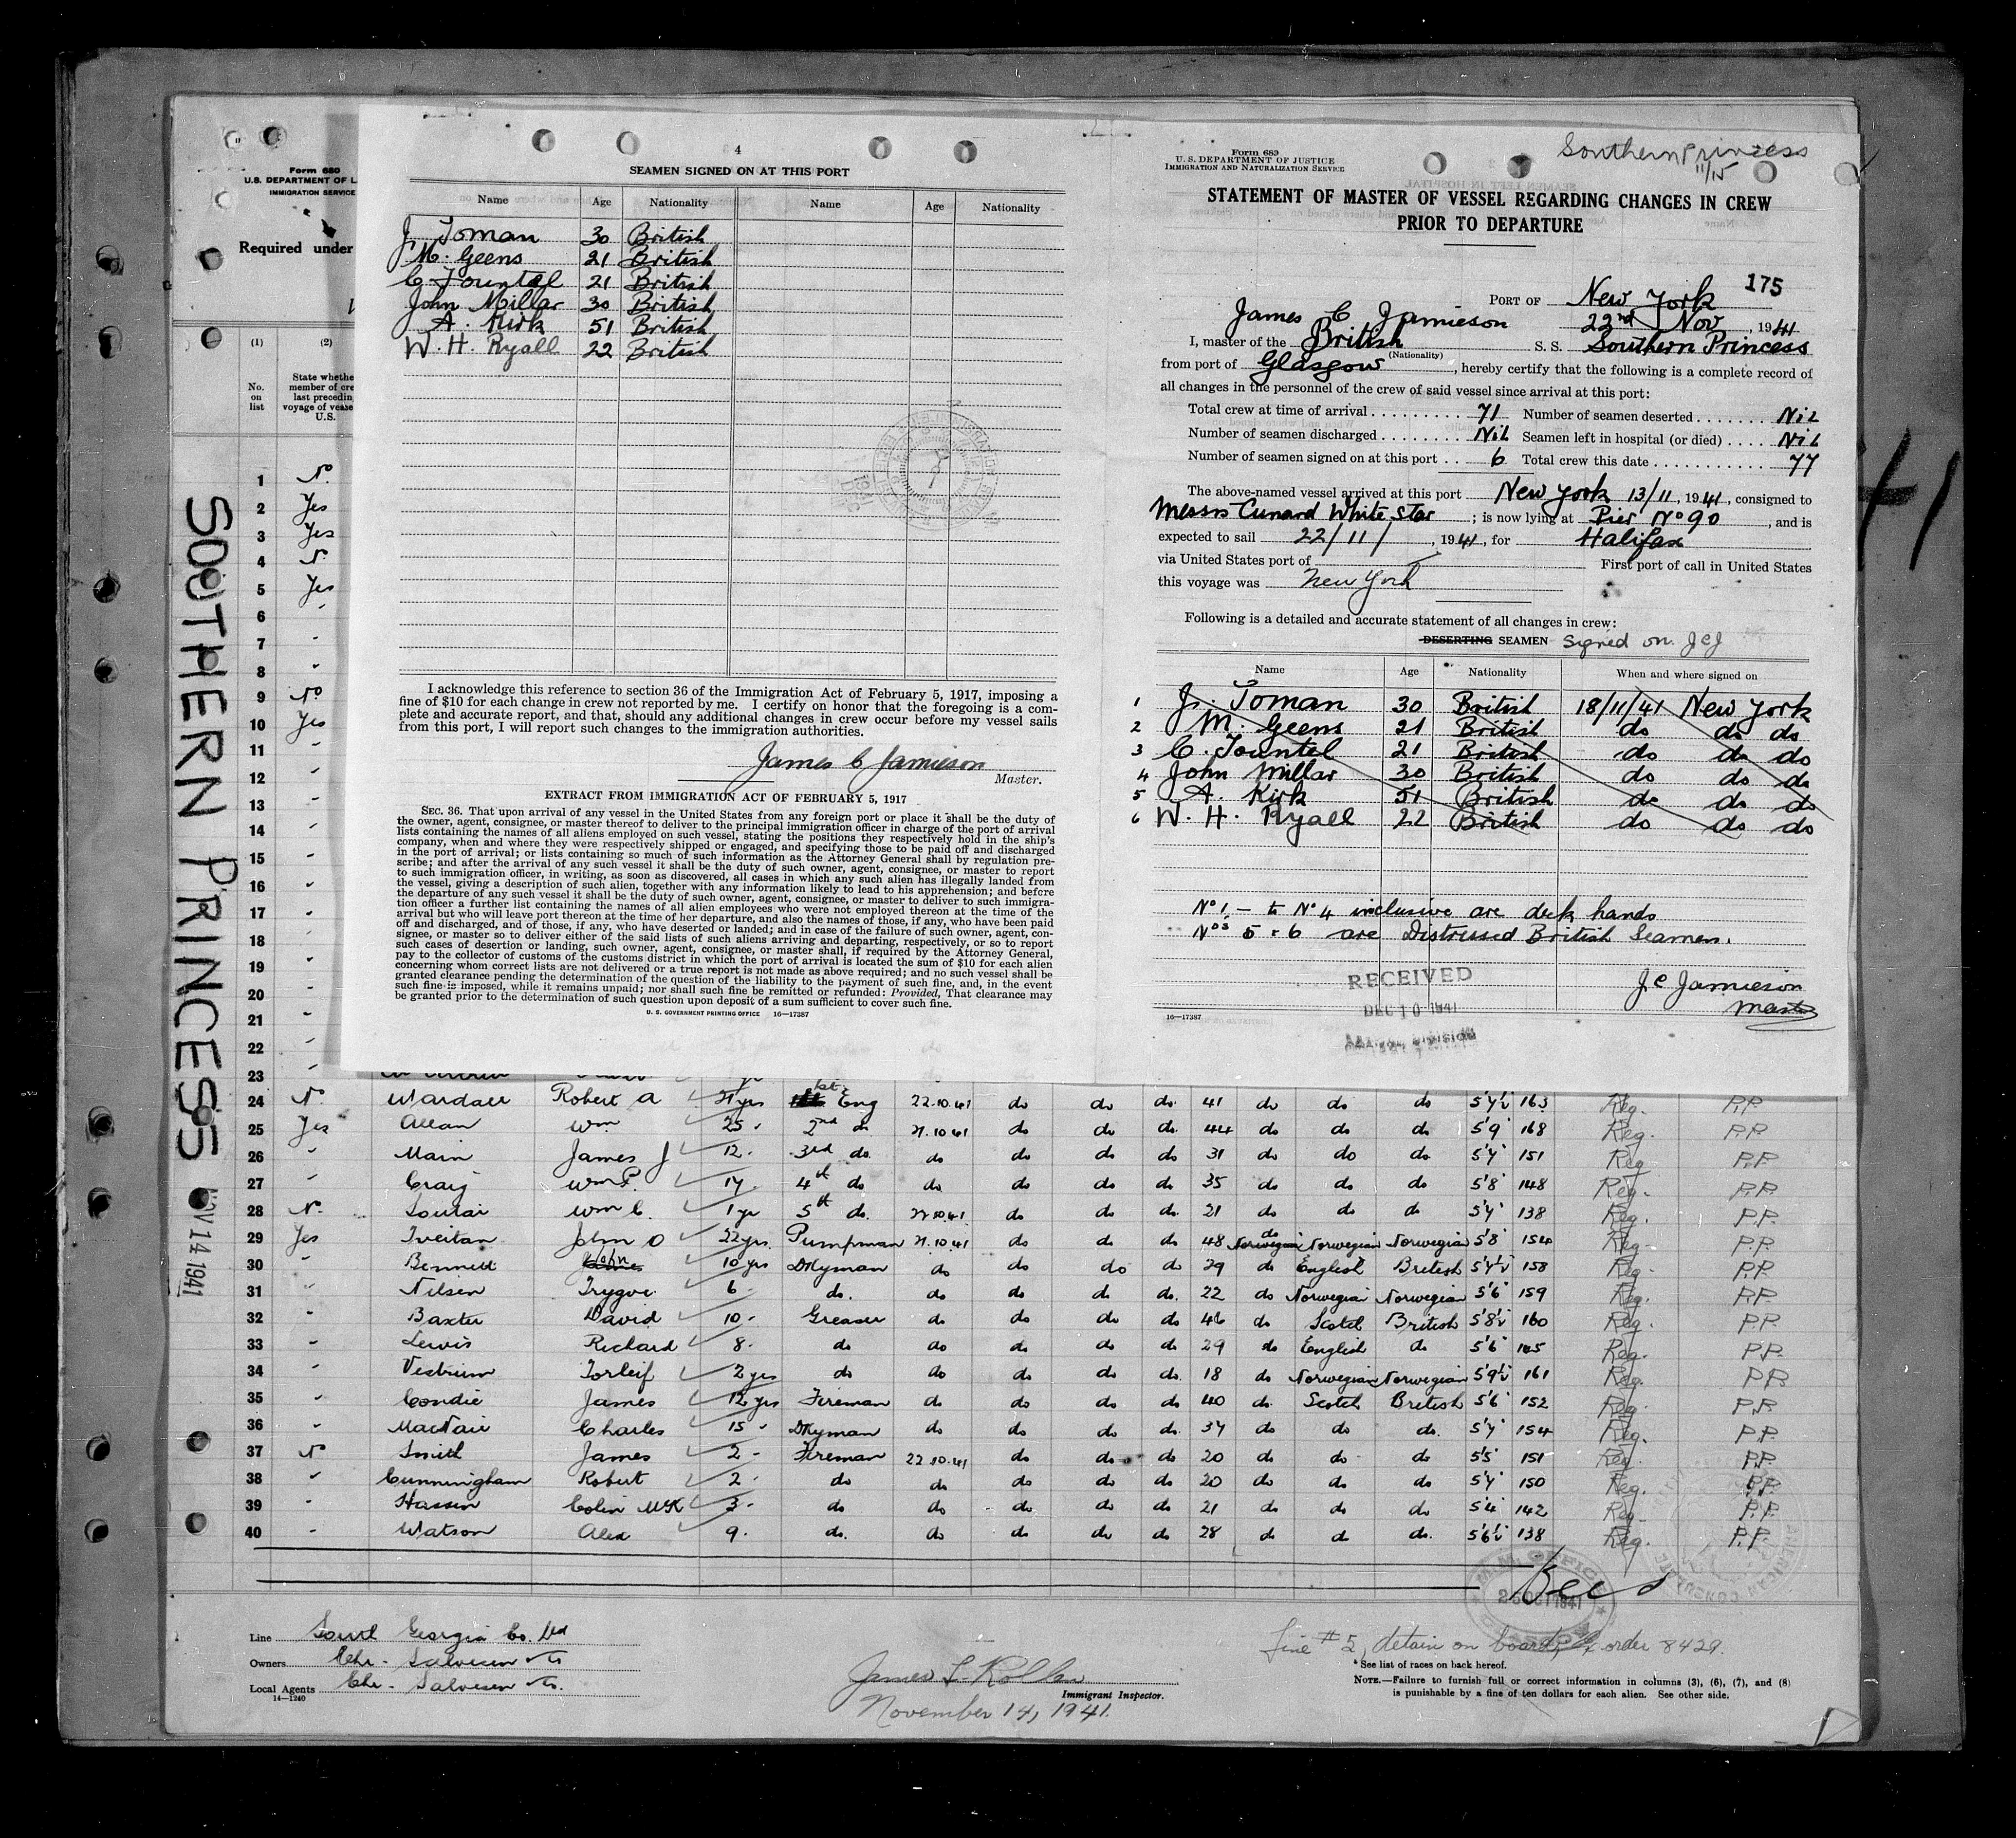 Form 680
U.S. DEPARTMENT OF L
IMMIGRATION SERVICE
Required under
(1) (2)
No. on list
State whethe
member of cre
last precedin
voyage of vesse
U.S.
SOUTHERN PRINCESS
NOV 14 1941
41
4
SEAMEN SIGNED ON AT THIS PORT
Name Age Nationality Name Age Nationality
J. Toman 30 British
M. Geens 21 British
C. Fountel 21 British
John Millar 30 British
A. Kirk 51 British
W. H. Ryall 22 British
I acknowledge this reference to section 36 of the Immigration Act of February 5, 1917, imposing a
fine of $10 for each change in crew not reported by me. I certify on honor that the foregoing is a com-
plete and accurate report, and that, should any additional changes in crew occur before my vessel sails
from this port, I will report such changes to the immigration authorities.
James C Jamieson
Master.
EXTRACT FROM IMMIGRATION ACT OF FEBRUARY 5, 1917
SEC. 36. That upon arrival of any vessel in the United States from any foreign port or place it shall be the duty of
the owner, agent, consignee, or master thereof to deliver to the principal immigration officer in charge of the port of arrival
lists containing the names of all aliens employed on such vessel, stating the positions they respectively hold in the ship's
company, when and where they were respectively shipped or engaged, and specifying those to be paid off and discharged
in the port of arrival; or lists containing so much of such information as the Attorney General shall by regulation pre-
scribe; and after the arrival of any such vessel it shall be the duty of such owner, agent, consignee, or master to report
to such immigration officer, in writing, as soon as discovered, all cases in which any such alien has illegally landed from
the vessel, giving a description of such alien, together with any information likely to lead to his apprehension; and before
the departure of any such vessel it shall be the duty of such owner, agent, consignee, or master to deliver to such immigra-
tion officer a further list containing the names of all alien employees who were not employed thereon at the time of the
arrival but who will leave port thereon at the time of her departure, and also the names of those, if any, who have been paid
off and discharged, and of those, if any, who have deserted or landed; and in case of the failure of such owner, agent, con-
signee, or master so to deliver either of the said lists of such aliens arriving and departing, respectively, or so to report
such cases of desertion or landing, such owner, agent, consignee, or master shall, if required by the Attorney General,
pay to the collector of customs of the customs district in which the port of arrival is located the sum of $10 for each alien
concerning whom correct lists are not delivered or a true report is not made as above required; and no such vessel shall be
granted clearance pending the determination of the question of the liability to the payment of such fine, and, in the event
such fine is imposed, while it remains unpaid; nor shall such fine be remitted or refunded: Provided, That clearance may
be granted prior to the determination of such question upon deposit of a sum sufficient to cover such fine.
U. S. GOVERNMENT PRINTING OFFICE 16—17387
Southern Princess
11/15
Form 689
U. S. DEPARTMENT OF JUSTICE
IMMIGRATION AND NATURALIZATION SERVICE
STATEMENT OF MASTER OF VESSEL REGARDING CHANGES IN CREW
PRIOR TO DEPARTURE
175
PORT OF New York
James C Jamieson 22nd Nov, 1941
I, master of the British S. S. Southern Princess
(Nationality)
from port of Glasgow, hereby certify that the following is a complete record of
all changes in the personnel of the crew of said vessel since arrival at this port:
Total crew at time of arrival 71 Number of seamen deserted Nil
Number of seamen discharged Nil Seamen left in hospital (or died) Nil
Number of seamen signed on at this port 6 Total crew this date 77
The above-named vessel arrived at this port New York 13/11, 1941, consigned to
Messrs Cunard White Star; is now lying at Pier No 90, and is
expected to sail 22/11/, 1941, for Halifax
via United States port of First port of call in United States
this voyage was New York
Following is a detailed and accurate statement of all changes in crew:
DESERTING SEAMEN Signed on. JCJ
Name Age Nationality When and where signed on
1 J. Toman 30 British 18/11/41 New York
2 M. Geens 21 British do do do
3 C. Fountel 21 British do do do
4 John Millar 30 British do do do
5 A. Kirk 51 British do do do
6 W. H. Ryall 22 British do do do
No 1 - to No 4 inclusive are deck hands
Nos 5 & 6 are Distressed British Seamen.
RECEIVED
DEC 10 1941
J C Jamieson
Master
16—17387
1 No
2 Yes
3 Yes
4 No
5 Yes
6 "
7 "
8 "
9 No
10 Yes
11 "
12 "
13 "
14 "
15 "
16 "
17 "
18 "
19 "
20 "
21 "
22 "
23 "
24 No Wardall Robert A 21 yrs 1st Eng 22.10.41 do do do 41 do do do 5'7½ 163 Reg. P.P.
25 Yes Allan Wm 25 " 2nd do 21.10.41 do do do 44 do do do 5'9 168 Reg. P.P.
26 " Main James J 12 " 3rd do do do do do 31 do do do 5'7 151 Reg P.P.
27 " Craig Wm P. 14 " 4th do do do do do 35 do do do 5'8 148 Reg. P.P.
28 No Soutar Wm C. 1 yr 5th do 22.10.41 do do do 21 do do do 5'7 138 Reg. P.P.
29 Yes Tveitan John O 22 yrs Pumpman 21.10.41 do do do 48 do Norwegian Norwegian Norwegian 5'8 154 Reg P.P.
30 " Bennett John 10 yrs Dkyman do do do do 29 do English British 5'7½ 158 Reg. P.P.
31 " Nilsen Trygve 6 " do. do do do do 22 do Norwegian Norwegian 5'6 159 Reg. P.P.
32 " Baxter David 10 " Greaser do do do do 46 do Scotch British 5'8½ 160 Reg. P.P.
33 " Lewis Richard 8 " do do do do do 29 do English do 5'6 145 Reg. P.P.
34 " Vestrum Torleif 2 yrs do do do do do 18 do Norwegian Norwegian 5'9½ 161 Reg. P.P.
35 " Condie James 12 yrs Fireman do do do do 40 do Scotch British 5'6 152 Reg. P.P.
36 " MacNair Charles 15 " Dkyman do do do do 37 do do do. 5'7 154 Reg. P.P.
37 No Smith James 2 " Fireman 22.10.41 do do do 20 do do do 5'5 151 Reg. P.P.
38 " Cunningham Robert 2 " do do do do do 20 do do do 5'7 150 Reg. P.P.
39 " Hassen Colin McK 3 " do do do do do 21 do do do 5'4 142 Reg. P.P.
40 " Watson Alex 9 " do. do do do do 28 do do do. 5'6½ 138 Reg. P.P.
M.M. OFFICE
25 OCT 1941
AMERICAN CONSULATE
Line South Georgia Co. Ltd
Owners Chr. Salvesen & Co
Local Agents Chr. Salvesen & Co.
14—1240
Line #5, detain on board, order 8429.
James L. Rollen
Immigrant Inspector.
November 14, 1941.
* See list of races on back hereof.
NOTE.—Failure to furnish full or correct information in columns (3), (6), (7), and (8)
is punishable by a fine of ten dollars for each alien. See other side.